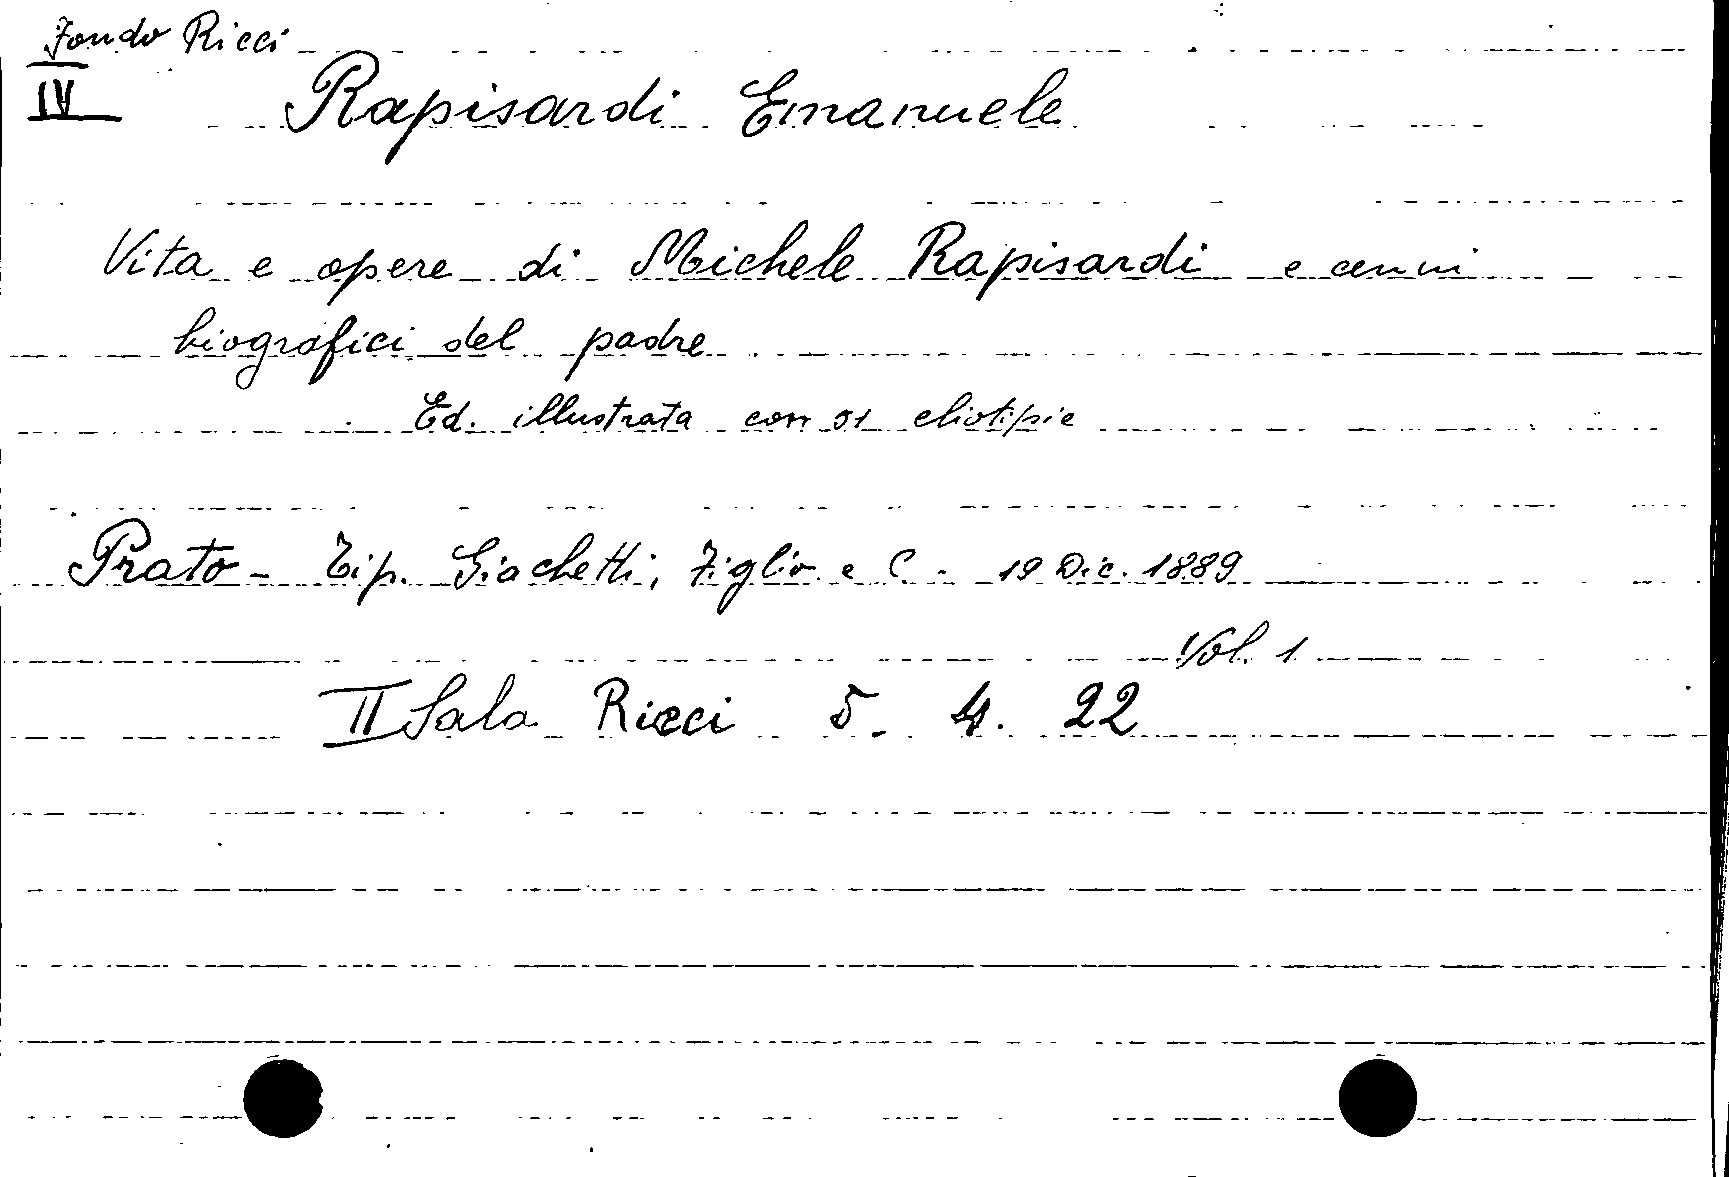 Fondo Ricci
IV
Rapisardi Emanuele
Vita e opere di Michele Rapisardi e cenni
biografici del padre
Ed. illustrata con 51 eliotipie
Prato - Tip. Giachetti, Figlio e C. - 19 Dic. 1889
Vol. 1
II Sala Ricci 5. 4. 22